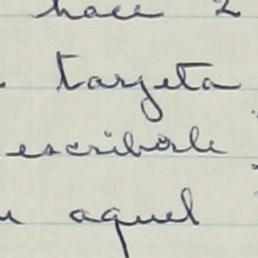 hace 2
targeta
escribirle
aquel